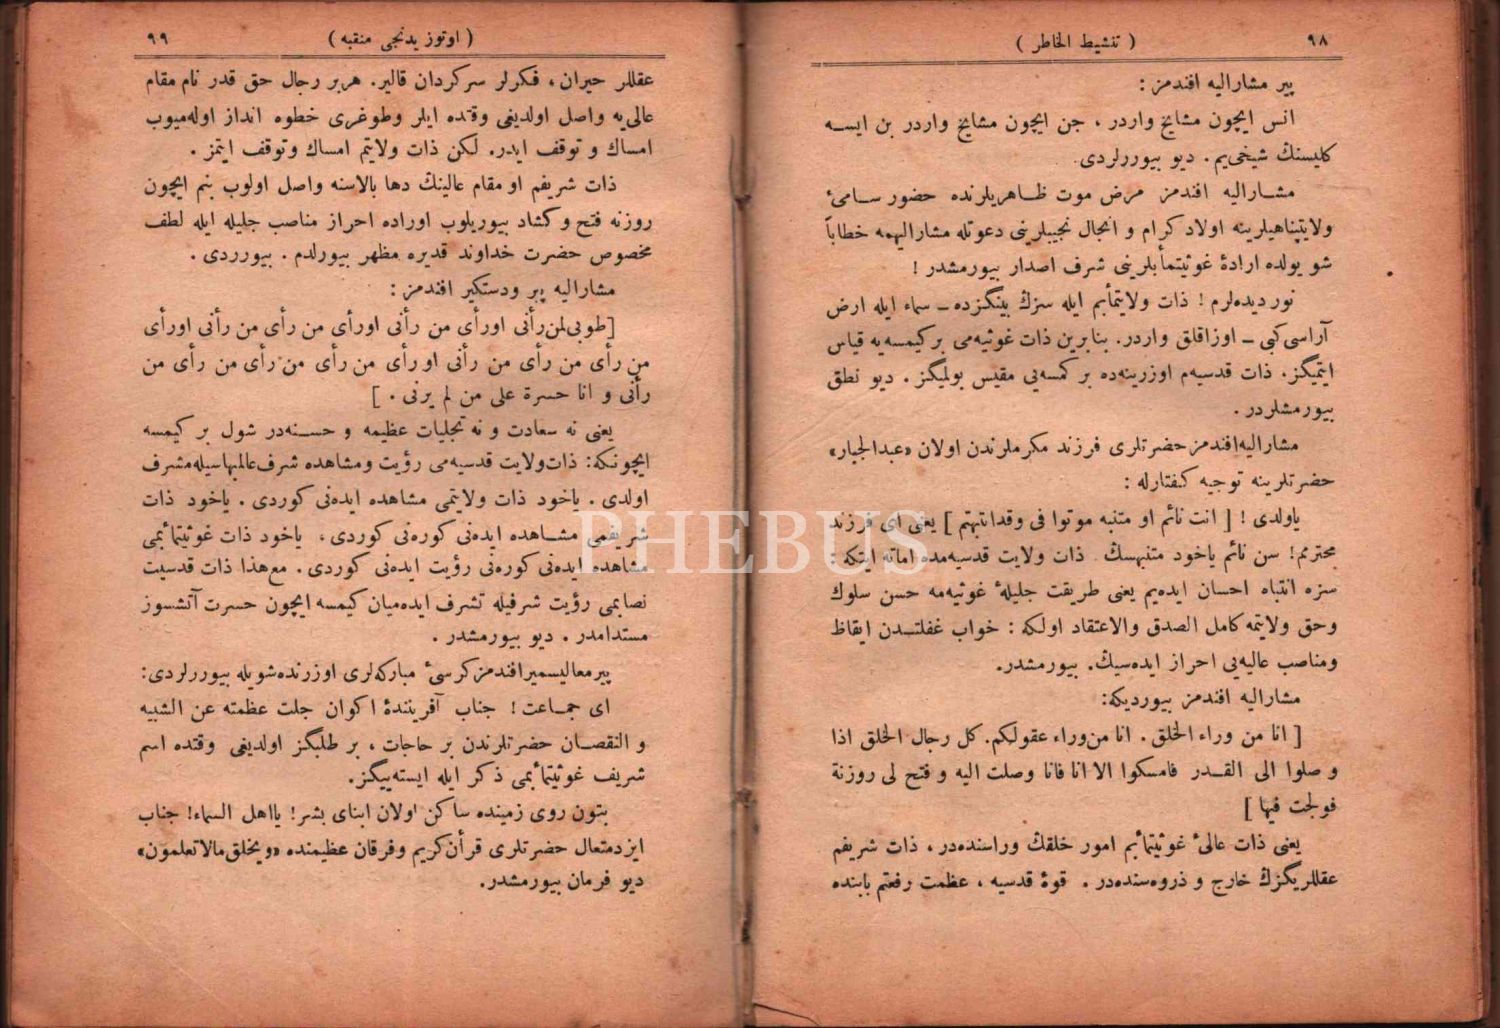 ٩٨ ( تنشيط الخاطر )
پير مشاراليه افندمز :
انس ايچون مشايخ واردر ، جن ايچون مشايخ واردر بن ايسه
كليسنڭ شيخى‌يم . ديو بيوررلردى
مشاراليه افندمز مرض موت ظاهريلرنده حضور سامئ
ولايتپناهيلرينه اولاد كرام و انجال نجيبلرينى دعوتله مشاراليهمه خطاباً
شو يولده ارادهٔ غوثيتمأبلرينى شرف اصدار بيورمشدر !
نور ديده‌لرم ! ذات ولايتمأبم ايله سزڭ بينگزده ـ سماء ايله ارض
آراسى كبى ـ اوزاقلق واردر. بنابرين ذات غوثيه‌مى بر كيمسه‌يه قياس
ايتميگز . ذات قدسيه‌م اوزرينه‌ده بر كمسه‌يى مقيس بولميگز . ديو نطق
بيورمشلردر .
مشاراليه افندمز حضرتلرى فرزند مكرملرندن اولان «عبدالجبار»
حضرتلرينه توجيه كفتارله :
ياولدى ! [ انت نائم او متنبه موتوا فى وقدانتبهتم ] يعنى اى فرزند
محترمم! سن نائم ياخود متنبهسڭ ذات ولايت قدسيه‌مده اماته ايتكه :
سزه انتباه احسان ايده‌يم يعنى طريقت جليلهٔ غوثيه‌مه حسن سلوك
وحق ولايتمه كامل الصدق والاعتقاد اولكه : خواب غفلتدن ايقاظ
ومناصب عاليه‌يى احراز ايده‌سيڭ. بيورمشدر.
مشاراليه افندمز بيورديكه:
[ انا من وراء الخلق . انا من‌وراء عقولكم. كل رجال الحلق اذا
وصلوا الى القدر فامسكوا الا انا فانا وصلت اليه و فتح لى روزنة
فولجت فيها ]
يعنى ذات عالئ غوثيتمأبم امور خلقڭ وراسنده‌در ، ذات شريفم
عقللريگزڭ خارج و ذروه‌سنده‌در . قوهٔ قدسيه ، عظمت رفعتم بابنده
( اوتوز يدنجى منقبه ) ٩٩
عقللر حيران ، فكرلر سركردان قالير. هربر رجال حق قدر نام مقام
عالى‌يه واصل اولديغى وقتده ايلر وطوغرى خطوه انداز اوله‌ميوب
امساك و توقف ايدر. لكن ذات ولايتم امساك وتوقف ايتمز .
ذات شريفم او مقام عالينڭ دها بالاسنه واصل اولوب بنم ايچون
روزنه فتح و كشاد بيوريلوب اوراده احراز مناصب جليله ايله لطف
مخصوص حضرت خداوند قديره مظهر بيورلدم . بيورردى .
مشاراليه پير ودستكير افندمز :
[طوبى‌لمن‌رأنى اورأى من رأنى اورأى من رأى من رأنى اورأى
من رأى من رأى من رأنى او رأى من رأى من رأى من رأى من
رأنى و انا حسرة على من لم يرنى . ]
يعنى نه سعادت و نه تجليات عظيمه و حسنه‌در شول بر كيمسه
ايچونكه: ذات‌ولايت قدسيه‌مى رؤيت ومشاهده شرف‌عالمبهاسيله‌مشرف
اولدى . ياخود ذات ولايتمى مشاهده ايده‌نى كوردى . ياخود ذات
شريفمى مشاهده ايده‌نى كوره‌نى كوردى ، ياخود ذات غوثيتمأبمى
مشاهده ايده‌نى كوره‌نى رؤيت ايده‌نى كوردى . مع‌هذا ذات قدسيت
نصابمى رؤيت شرفيله تشرف ايده‌ميان كيمسه ايچون حسرت آتشسوز
مستدامدر . ديو بيورمشدر .
پيرمعاليسميرافندمزكرسئ مباركه‌لرى اوزرنده‌شويله بيوررلردى:
اى جماعت ! جناب آفرينندهٔ اكوان جلت عظمته عن الشبيه
و النقصان حضرتلرندن بر حاجات ، بر طلبگز اولديغى وقتده اسم
شريف غوثيتمأبمى ذكر ايله ايسته‌ييگز.
بتون روى زمينده ساكن اولان ابناى بشر! يااهل السماء! جناب
ايزدمتعال حضرتلرى قرأن‌كريم وفرقان عظيمنده «ويخلق‌مالاتعلمون»
ديو فرمان بيورمشدر.
PHEBUS